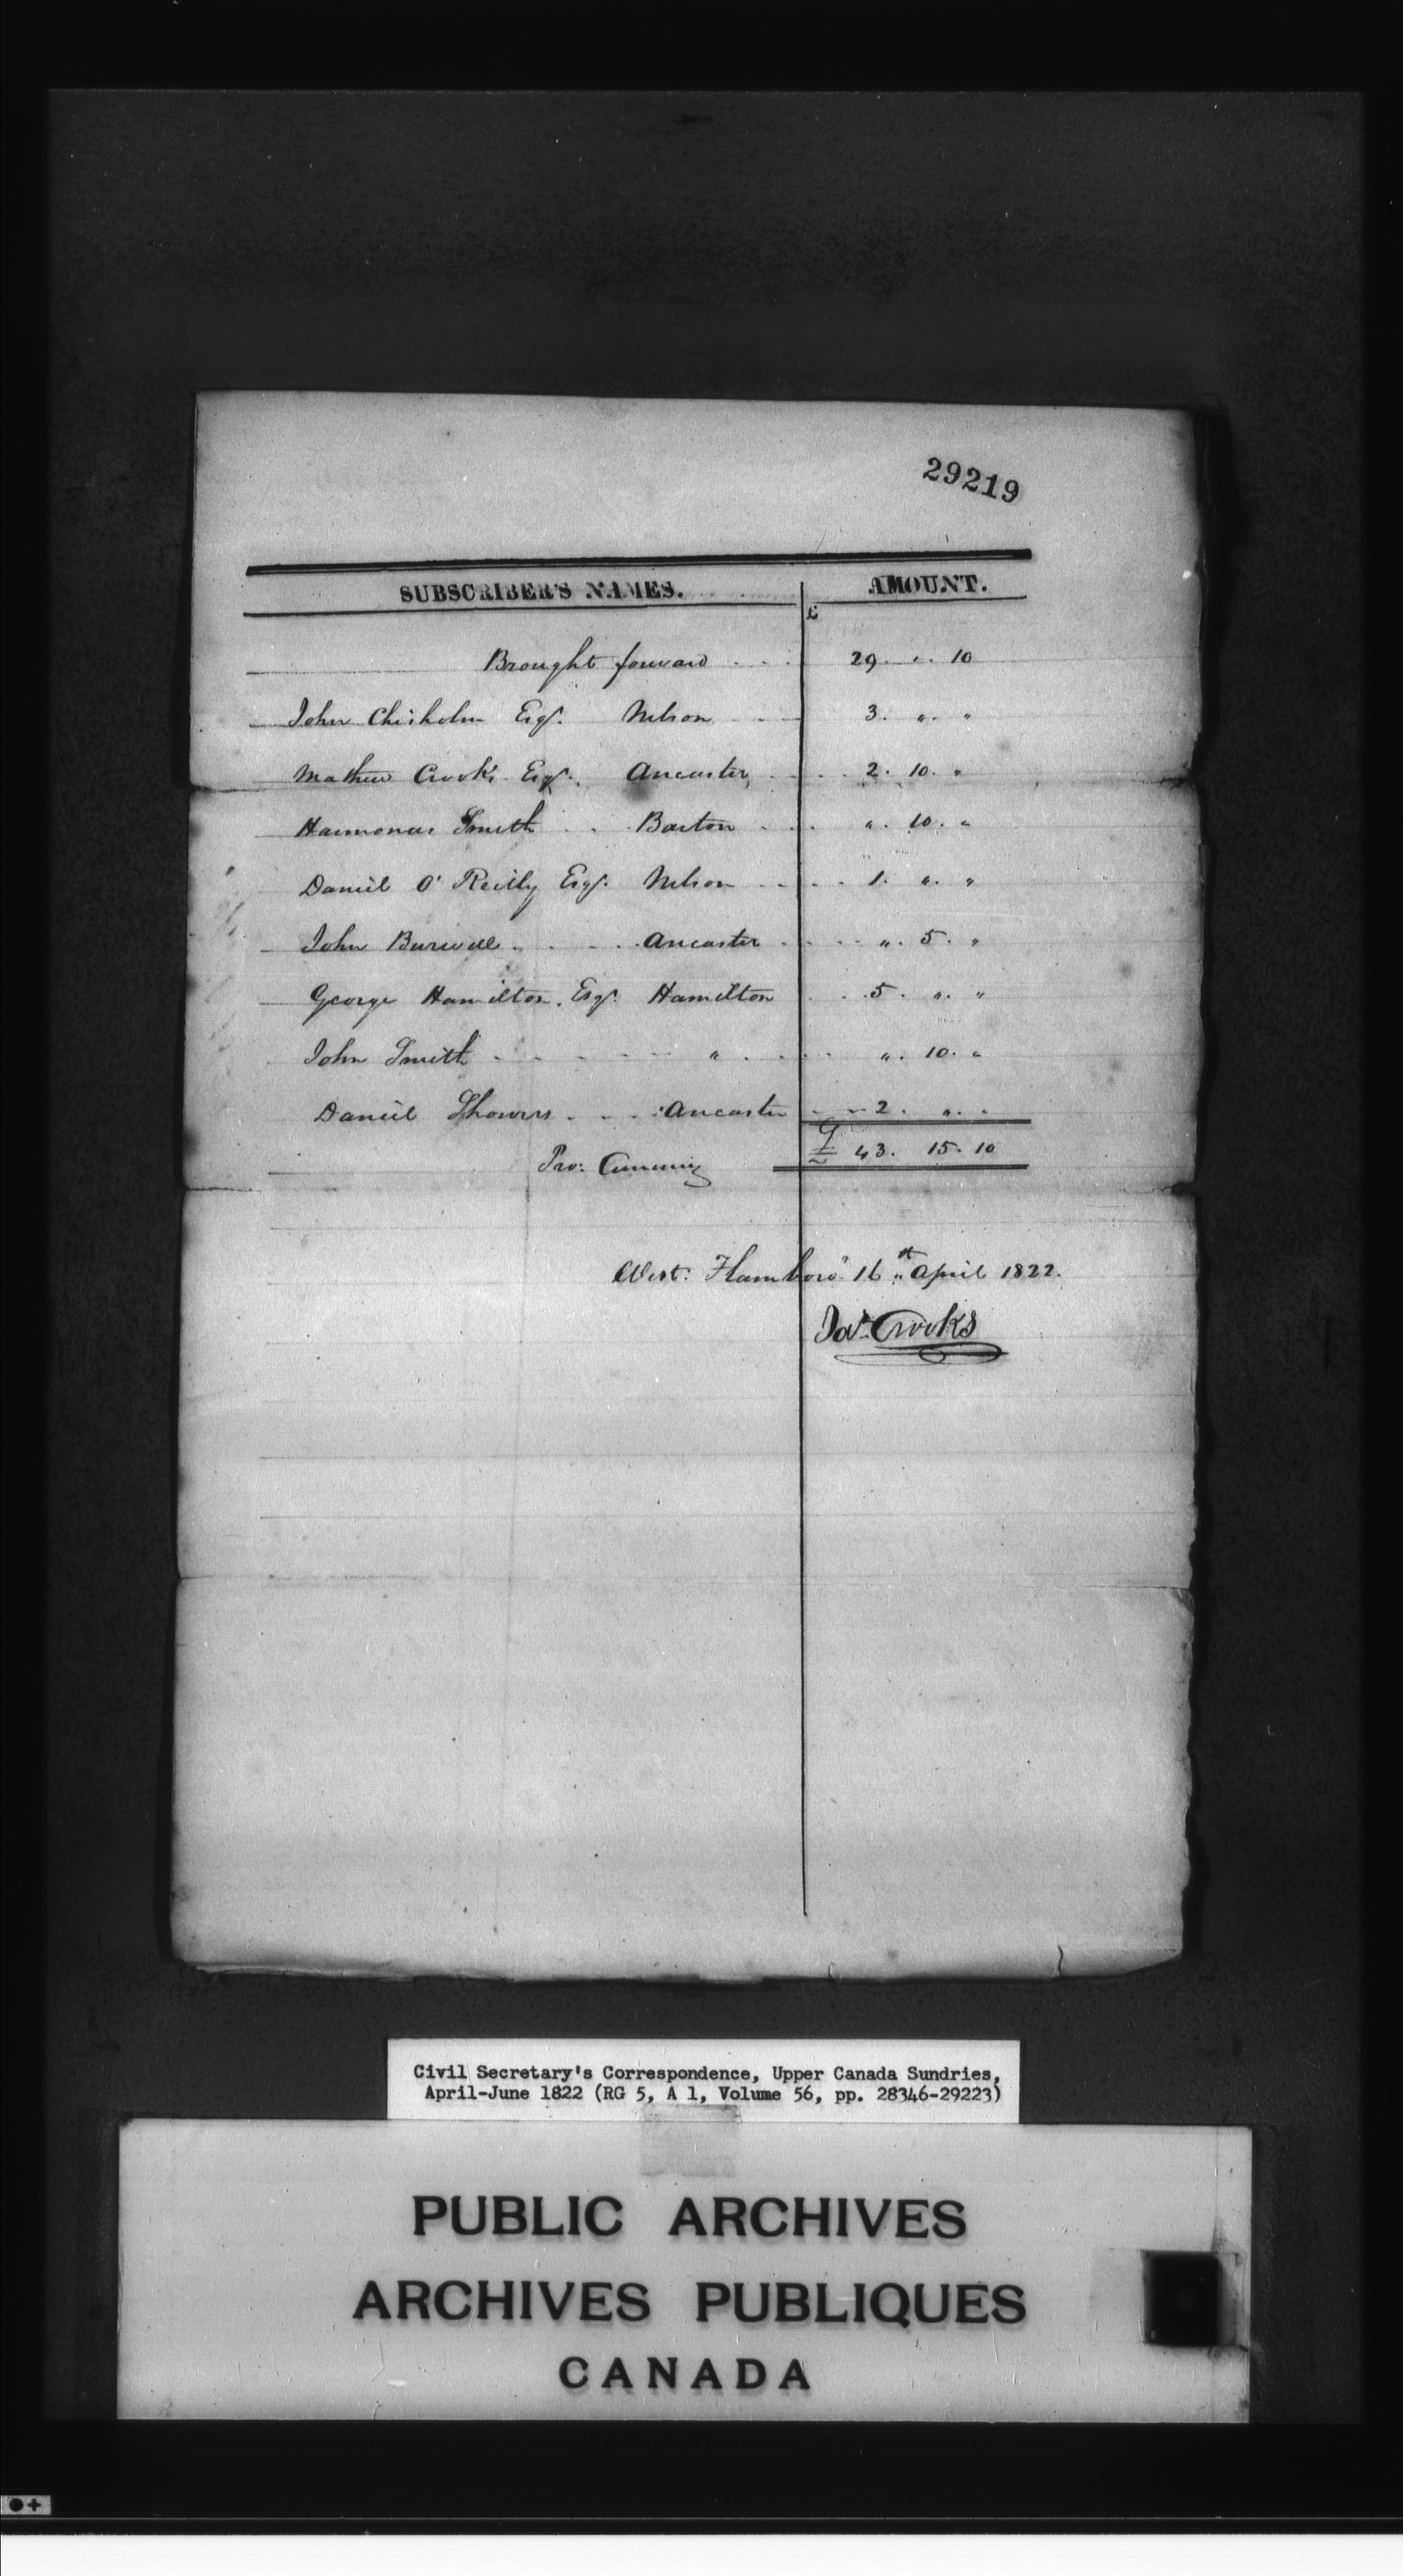 29219
SUBSCRIBER'S NAMES. AMOUNT.
£
Brought forward . . . 29. ". 10
John Chisholm Esqr. Nelson . . . 3. ". "
Mathew Crooks Esqr. Ancaster . . . 2. 10. "
Harmonus Smith . . Barton . . . ". 10. "
Daniel O'Reilly Esqr. Nelson . . . 1. ". "
John Burwell . . . . Ancaster . . . ". 5. "
George Hamilton. Esqr. Hamilton . . 5. ". "
John Smith . . . . " . . . ". 10. "
Daniel Showers . . . Ancaster . . 2. ". "
Pro: Cur.y £ 43. 15. 10
West Flamboro' 16th April 1822.
Jas. Crooks
Civil Secretary's Correspondence, Upper Canada Sundries,
April-June 1822 (RG 5, A 1, Volume 56, pp. 28346-29223)
PUBLIC ARCHIVES
ARCHIVES PUBLIQUES
CANADA